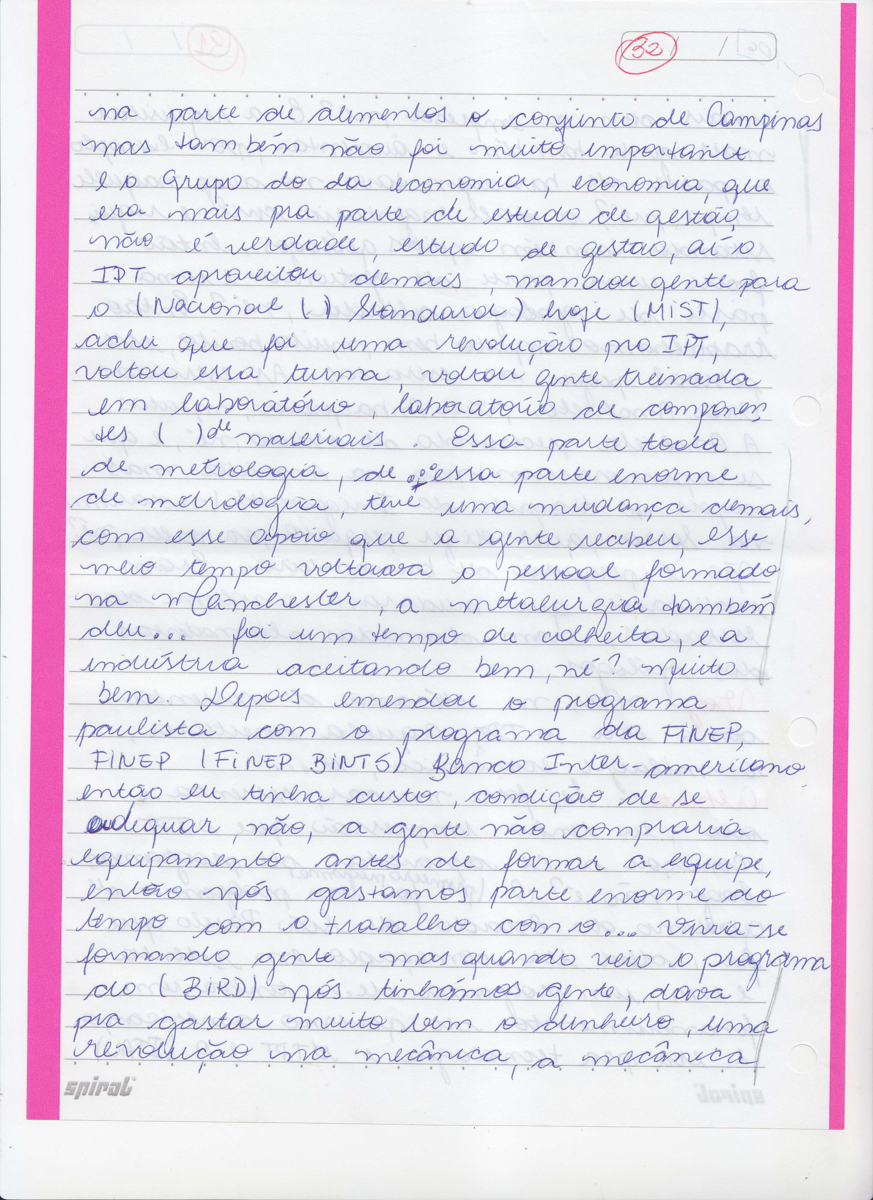 32
na parte de alimentos o conjunto de Campinas
mas também não foi muito importante
e o grupo do da economia, economia, que
era mais pra parte de estudo de gestão,
não é verdade, estudo de gestão, aí o
IPT aproveitou demais, mandou gente para
o (Nacional ( ) Standard) hoje (MiST),
achu que foi uma revolução pro IPT,
voltou essa turma, voltou gente treinada
em laboratório, laboratório de componen-
tes ( ) de materiais. Essa parte toda
de metrologia, de ... essa parte enorme
de metrologia, teve uma mudança demais,
com esse apoio que a gente recebeu, esse
meio tempo voltava o pessoal formado
na Manchester, a metalurgia também
deu... foi um tempo de colheita, e a
indústria aceitando bem, né? Muito
bem. Depois emendou o programa
paulista com o programa da FINEP,
FINEP (FiNEP BiNTS) Banco Inter-americano,
então eu tinha custo, condição de se
adequar, não, a gente não compraria
equipamento antes de formar a equipe,
então nós gastamos parte enorme do
tempo com o trabalho com o... vivia-se
formando gente, mas quando veio o programa
do (BiRD) nós tinhámos gente, dava
pra gastar muito bem o dinheiro, uma
revolução na mecânica, a mecânica
spiral